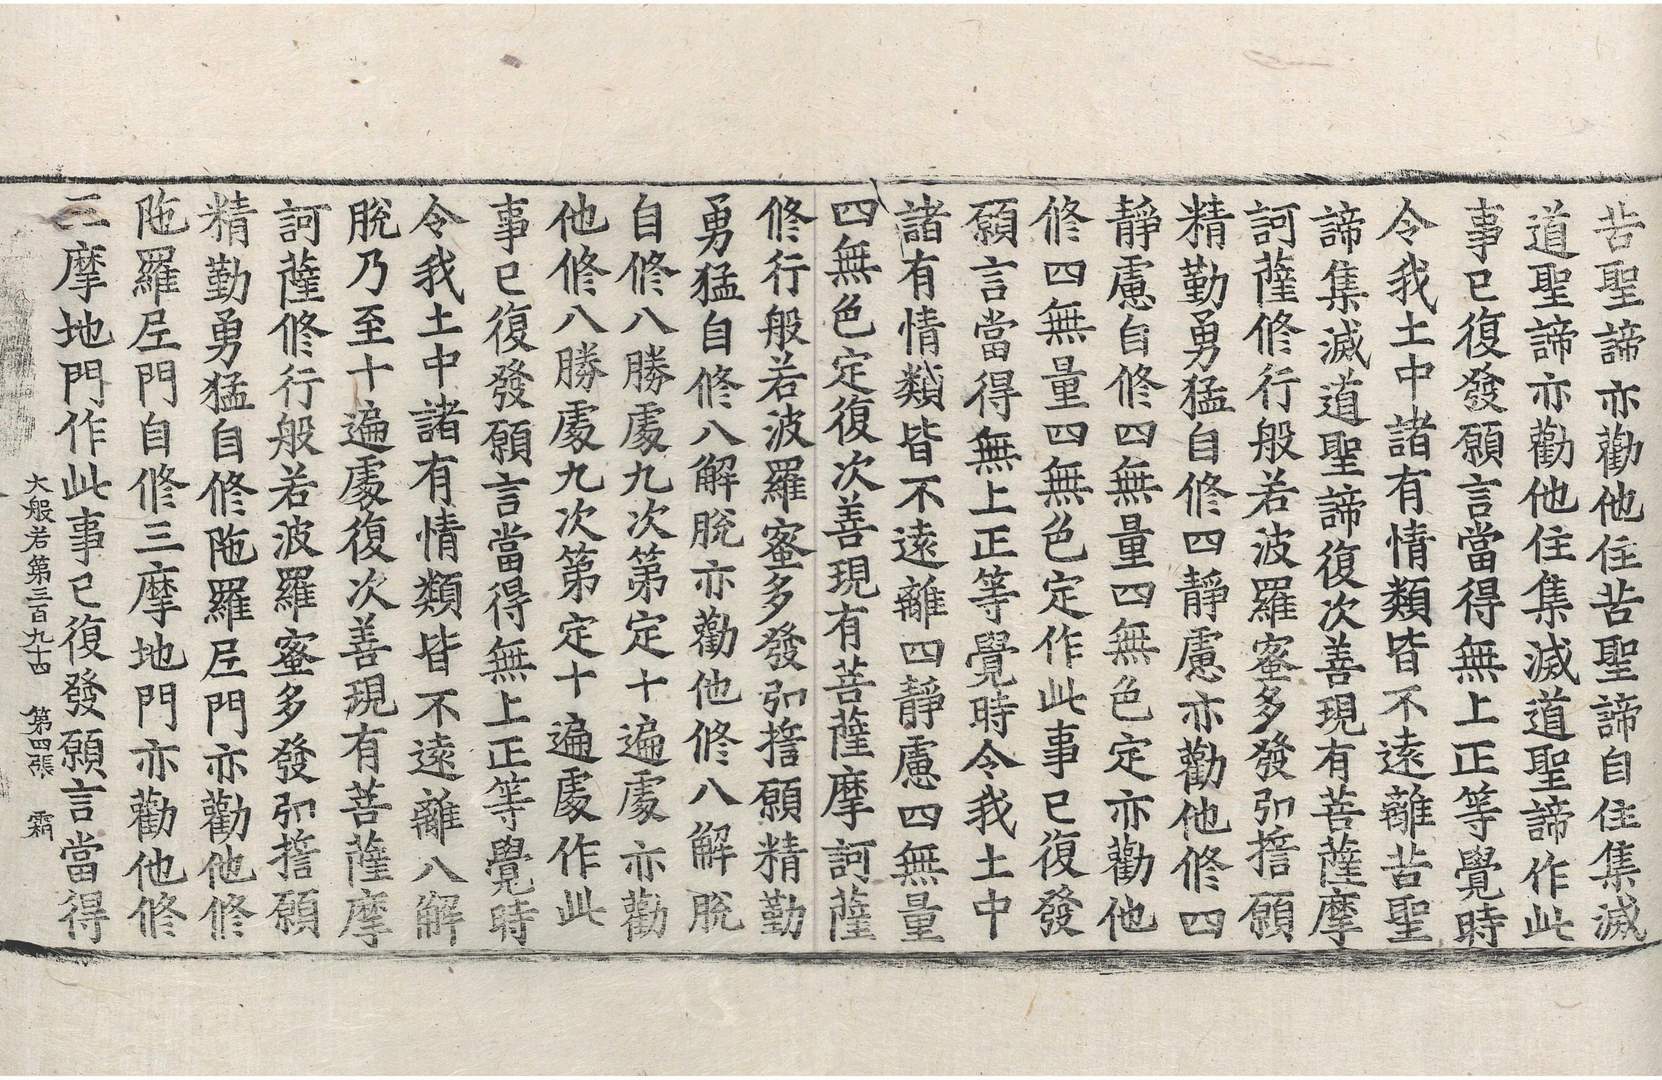 苦聖諦亦勸他住苦聖諦自住集滅
道聖諦亦勸他住集滅道聖諦作此
事已復發願言當得無上正等覺時
令我土中諸有情類皆不遠離苦聖
諦集滅道聖諦復次善現有菩薩摩
訶薩修行般若波羅蜜多發弘誓願
精勤勇猛自修四靜慮亦勸他修四
靜慮自修四無量四無色定亦勸他
修四無量四無色定作此事已復發
願言當得無上正等覺時令我土中
諸有情類皆不遠離四靜慮四無量
四無色定復次善現有菩薩摩訶薩
修行般若波羅蜜多發弘誓願精勤
勇猛自修八解脫亦勸他修八解脫
自修八勝處九次第定十遍處亦勸
他修八勝處九次第定十遍處作此
事已復發願言當得無上正等覺時
令我土中諸有情類皆不遠離八解
脫乃至十遍處復次善現有菩薩摩
訶薩修行般若波羅蜜多發弘誓願
精勤勇猛自修陁羅尼門亦勸他修
陁羅尼門自修三摩地門亦勸他修
三摩地門作此事已復發願言當得
大般若第三百九十四 第四張 霜